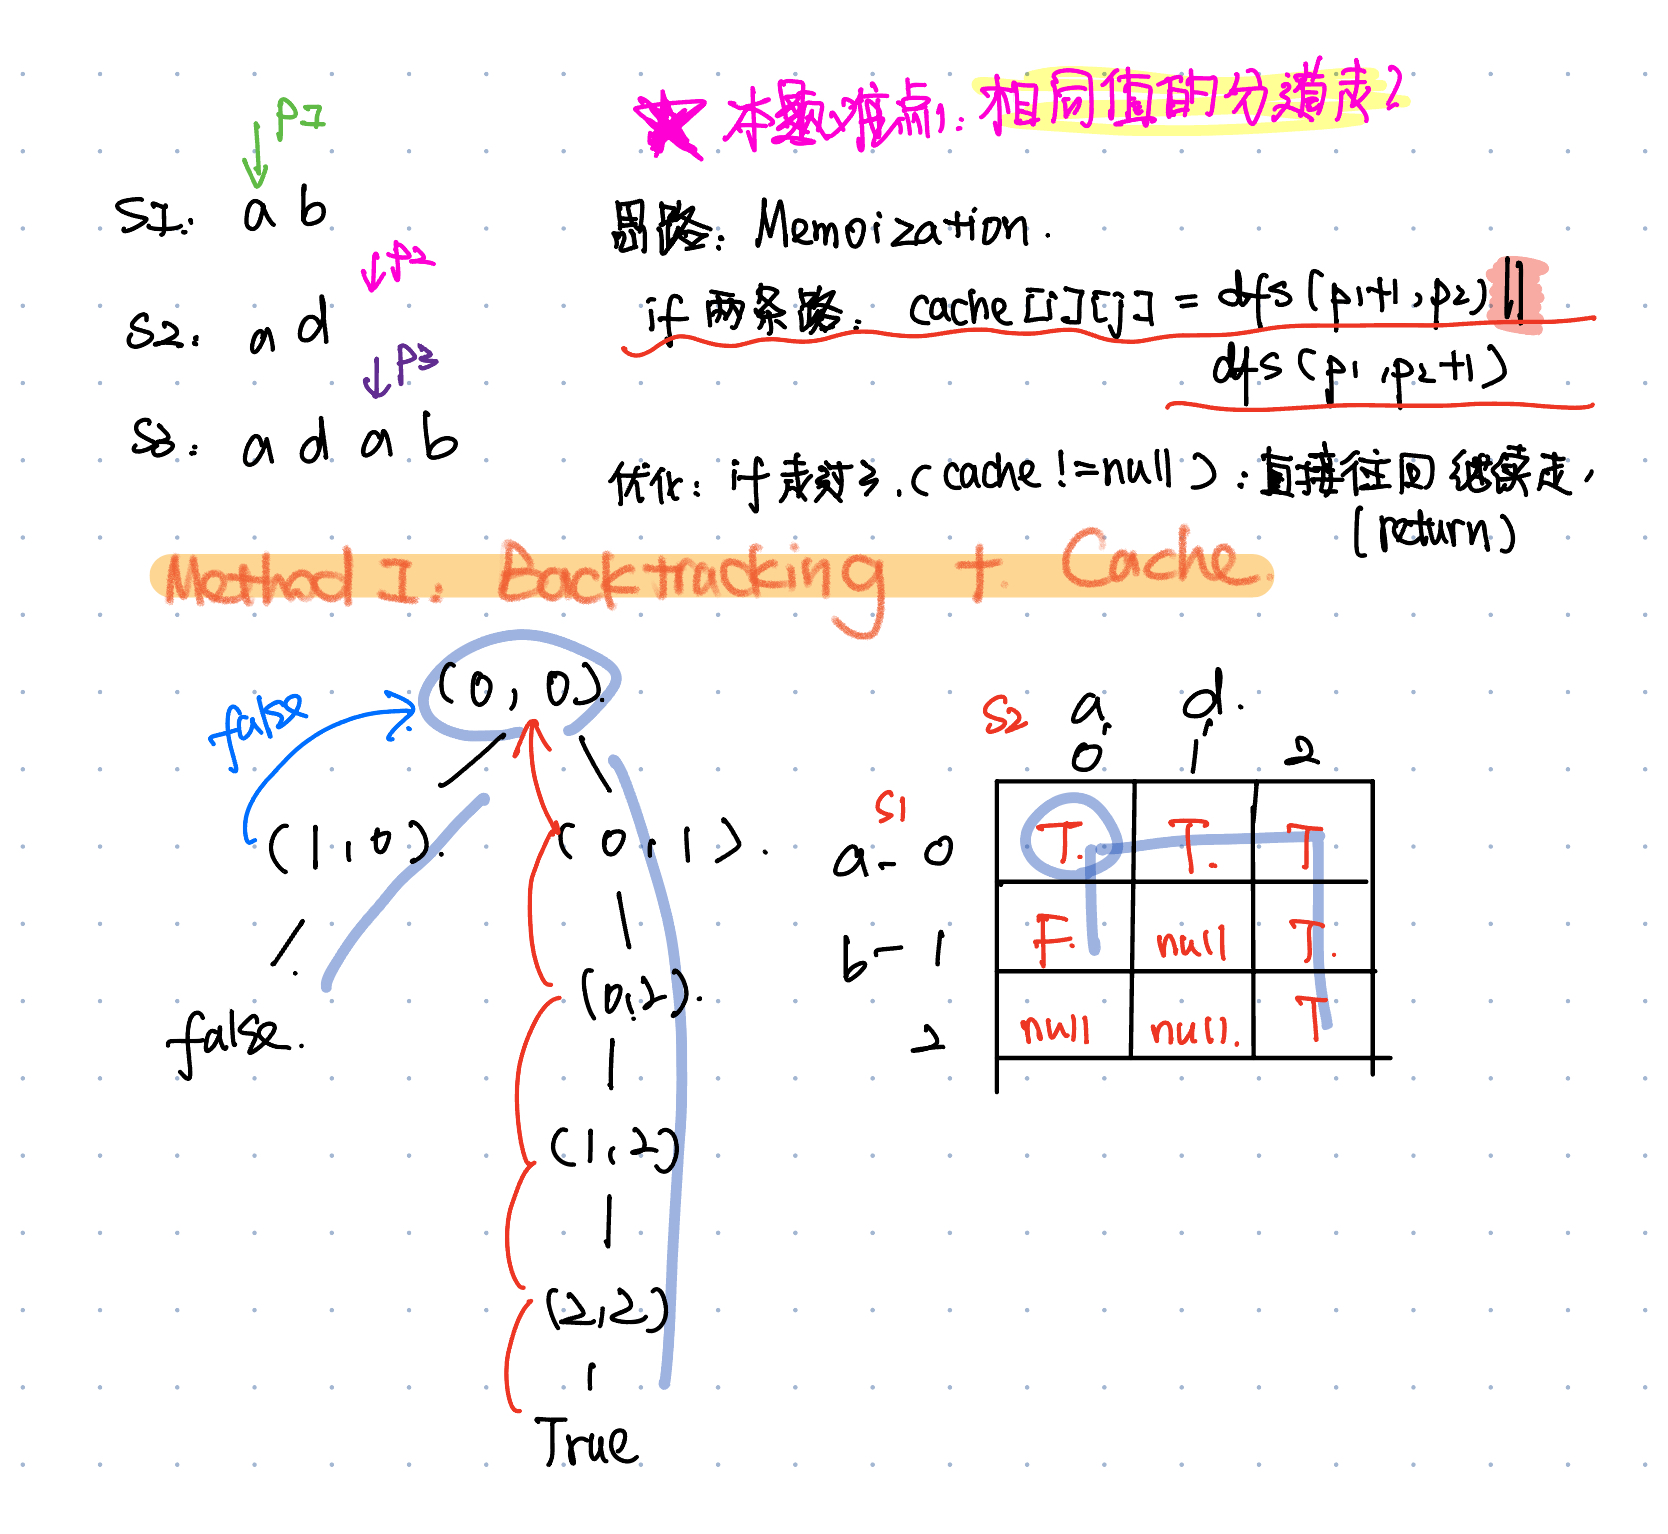 ★ 本题难点: 相同值的分道走?
P1
S1: a b
P2
S2: a d
P3
S3: a d a b
思路: Memoization.
if 两条路: cache [i][j] = dfs (p1+1, p2) ||
dfs (p1, p2+1)
优化: if 走过了. (cache != null): 直接往回继续走,
(return)
Method 1: Backtracking + Cache.
(0, 0).
false
(1, 0). (0, 1).
false.
(0, 2).
(1, 2)
(2, 2)
True
S2 a d.
0 1 2
S1
a - 0 T. T. T
b - 1 F. null T.
2 null null. T